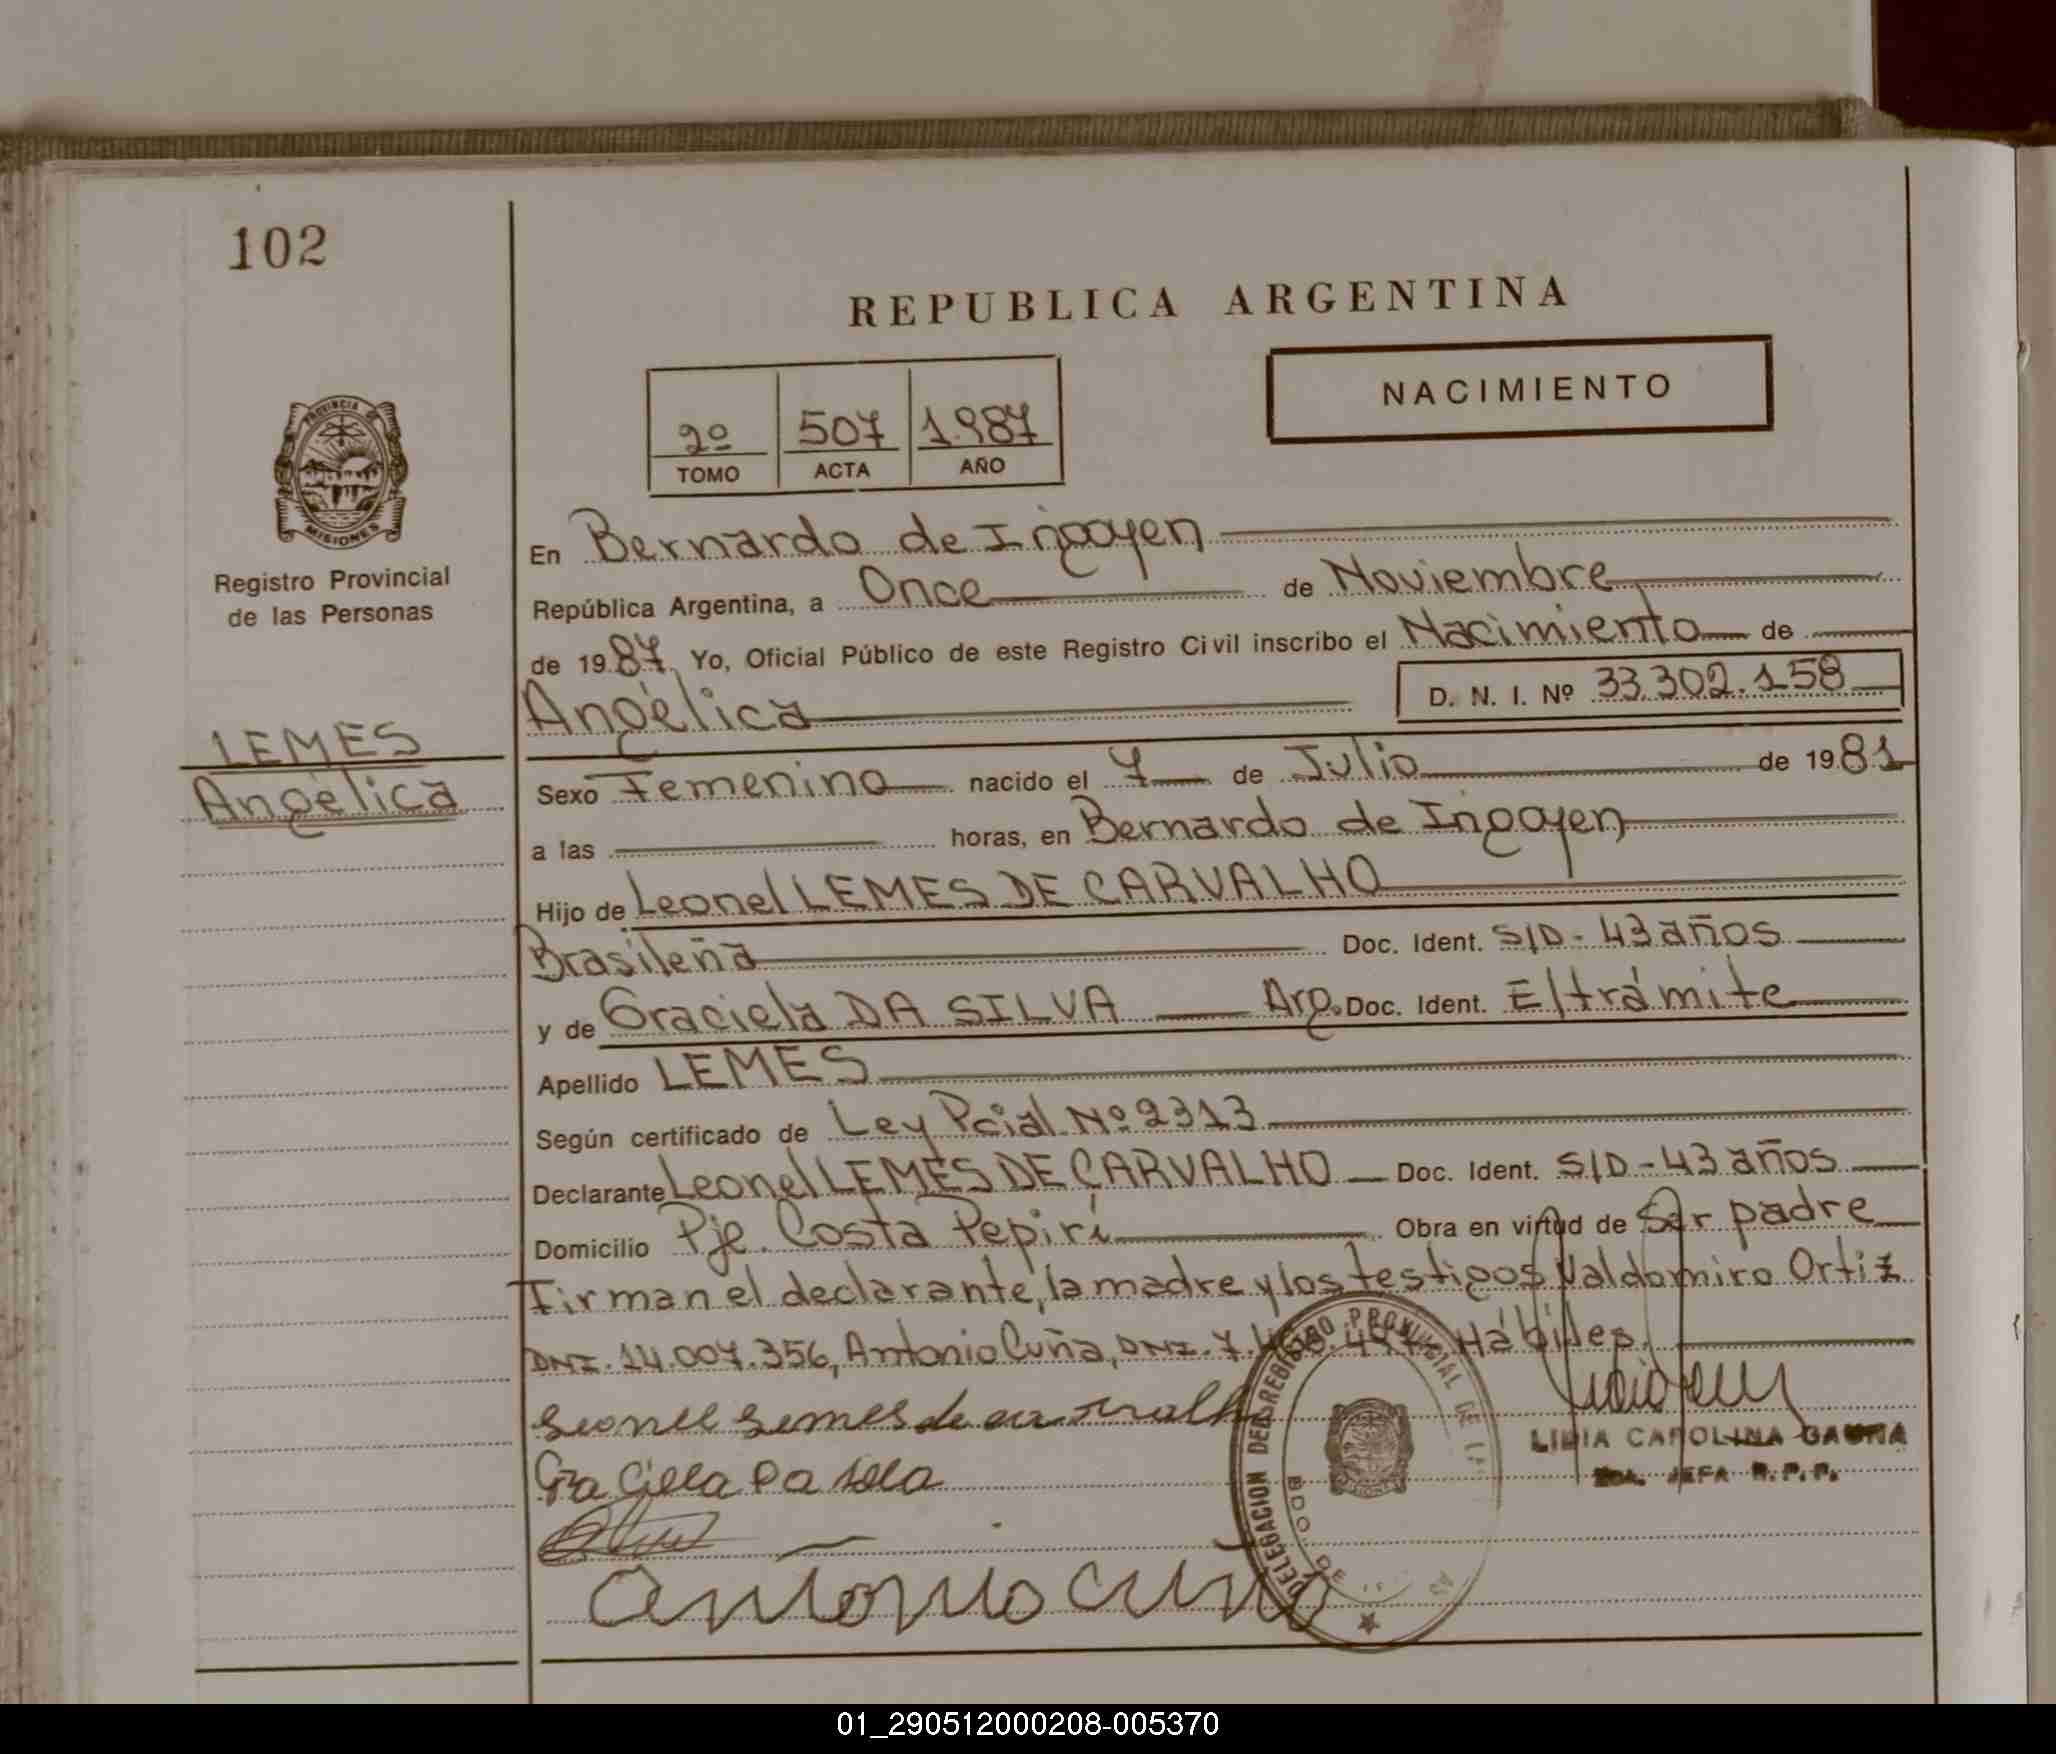 102
REPUBLICA ARGENTINA
NACIMIENTO
2º 507 1.987
TOMO ACTA AÑO
PROVINCIA DE
MISIONES
Registro Provincial
de las Personas
LEMES
Angélica
En Bernardo de Irigoyen
República Argentina, a Once de Noviembre
de 1987 Yo, Oficial Público de este Registro Civil inscribo el Nacimiento de
Angélica D. N. I. Nº 33.302.158
Sexo Femenino nacido el 7 de Julio de 1981
a las horas, en Bernardo de Irigoyen
Hijo de Leonel LEMES DE CARVALHO
Brasileña Doc. Ident. S/D - 43 años
y de Graciela DA SILVA Arg. Doc. Ident. E/trámite
Apellido LEMES
Según certificado de Ley Pcial. Nº 2313
Declarante Leonel LEMES DE CARVALHO Doc. Ident. S/D - 43 años
Domicilio Pje. Costa Pepirí Obra en virtud de Ser padre
Firman el declarante, la madre y los testigos Valdomiro Ortiz
DNI. 14.007.356, Antonio Cuña, DNI. 7. Hábiles.
DELEGACION DEL REGISTRO PROVINCIAL DE LA
LIDIA CAROLINA GAUNA
2da. JEFA R.P.P.
antonio cuña
01_290512000208-005370